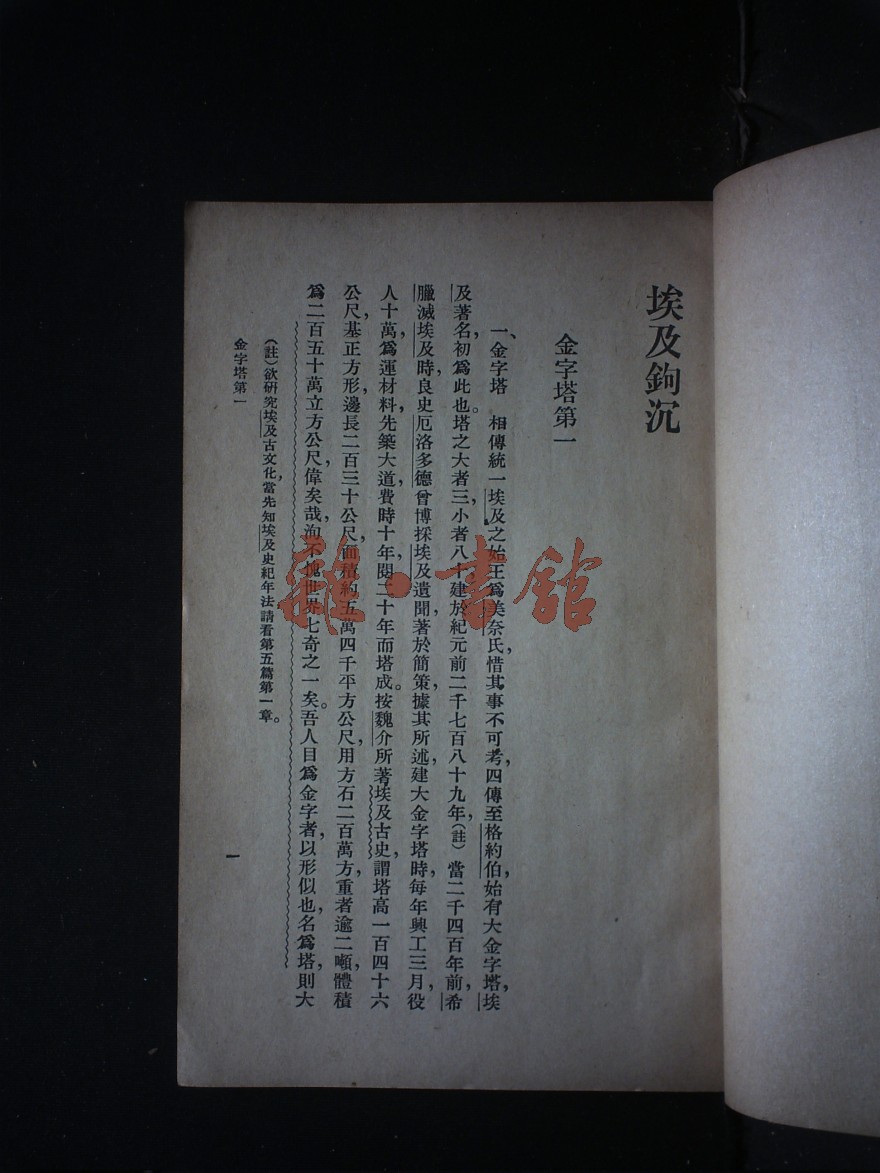 埃及鉤沉
金字塔第一
一、金字塔　相傳統一埃及之始王爲美奈氏，惜其事不可考，四傳至格約伯，始有大金字塔，埃
及著名，初爲此也。塔之大者三，小者八十，建於紀元前二千七百八十九年，（註）當二千四百年前，希
臘滅埃及時，良史厄洛多德曾博採埃及遺聞，著於簡策，據其所述，建大金字塔時，每年興工三月，役
人十萬，爲運材料，先築大道，費時十年，閱二十年而塔成。按魏介所著埃及古史，謂塔高一百四十六
公尺，基正方形，邊長二百三十公尺，面積約五萬四千平方公尺，用方石二百萬方，重者逾二噸，體積
爲二百五十萬立方公尺，偉矣哉，洵不愧世界七奇之一矣。吾人目爲金字者，以形似也，名爲塔，則大
（註）欲研究埃及古文化，當先知埃及史紀年法，請看第五篇第一章。
金字塔第一
一
雜·書館